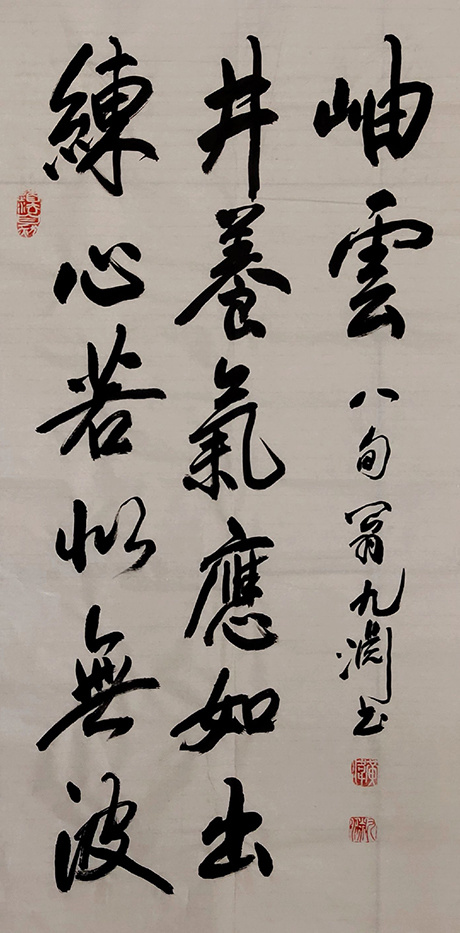 練心若似無波
井養氣應如出
岫雲 八旬翁九淵书